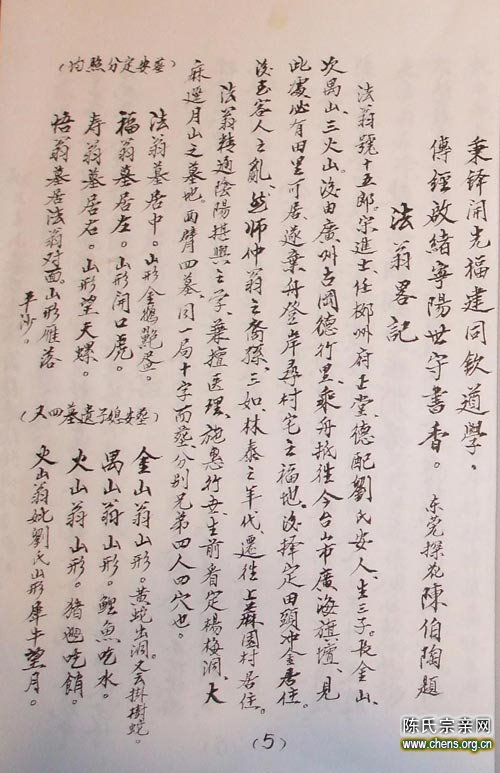 秉鐸開先福建同欽道學。
傳經啟緒寧陽世守書香。 東莞探花陳伯陶題
法翁畧記
法翁號十五郎。宋進士、任柳州府正堂、德配劉氏安人、生三子。長金山、
次禺山、三火山。後由廣州古岡德行里、乘舟抵往今台山市廣海旗壇、見
此處必有田里可居、遂棄舟登岸尋村宅之福地。後擇定田頭沖金居住。
後至客人之亂、然師仲翁之裔孫、三如林泰之年代、遷往上蔴園村居住。
法翁精通陰陽堪輿之学、兼擅医理、施惠行安、生前看定楊梅洞、大
麻逕月山之墓地。兩臂四墓、同一局十字而塟、分别兄第四人四穴也。
(均照分定安塟)
法翁墓居中。山形金鵝 蛋。
福翁墓居左。山形開口虎。
寿翁墓居右。山形望天螺。
悟翁墓居法翁对面。山形雁落
平沙。
(又四墓遺子媳安塟)
金山翁山形。黄蛇出洞。又云掛樹蛇。
禺山翁山形。鯉魚吃水。
火山翁山形。猪 吃餚。
火山翁妣劉氏山形犀牛望月。
(5)
陈氏宗亲网
www.chens.org.cn